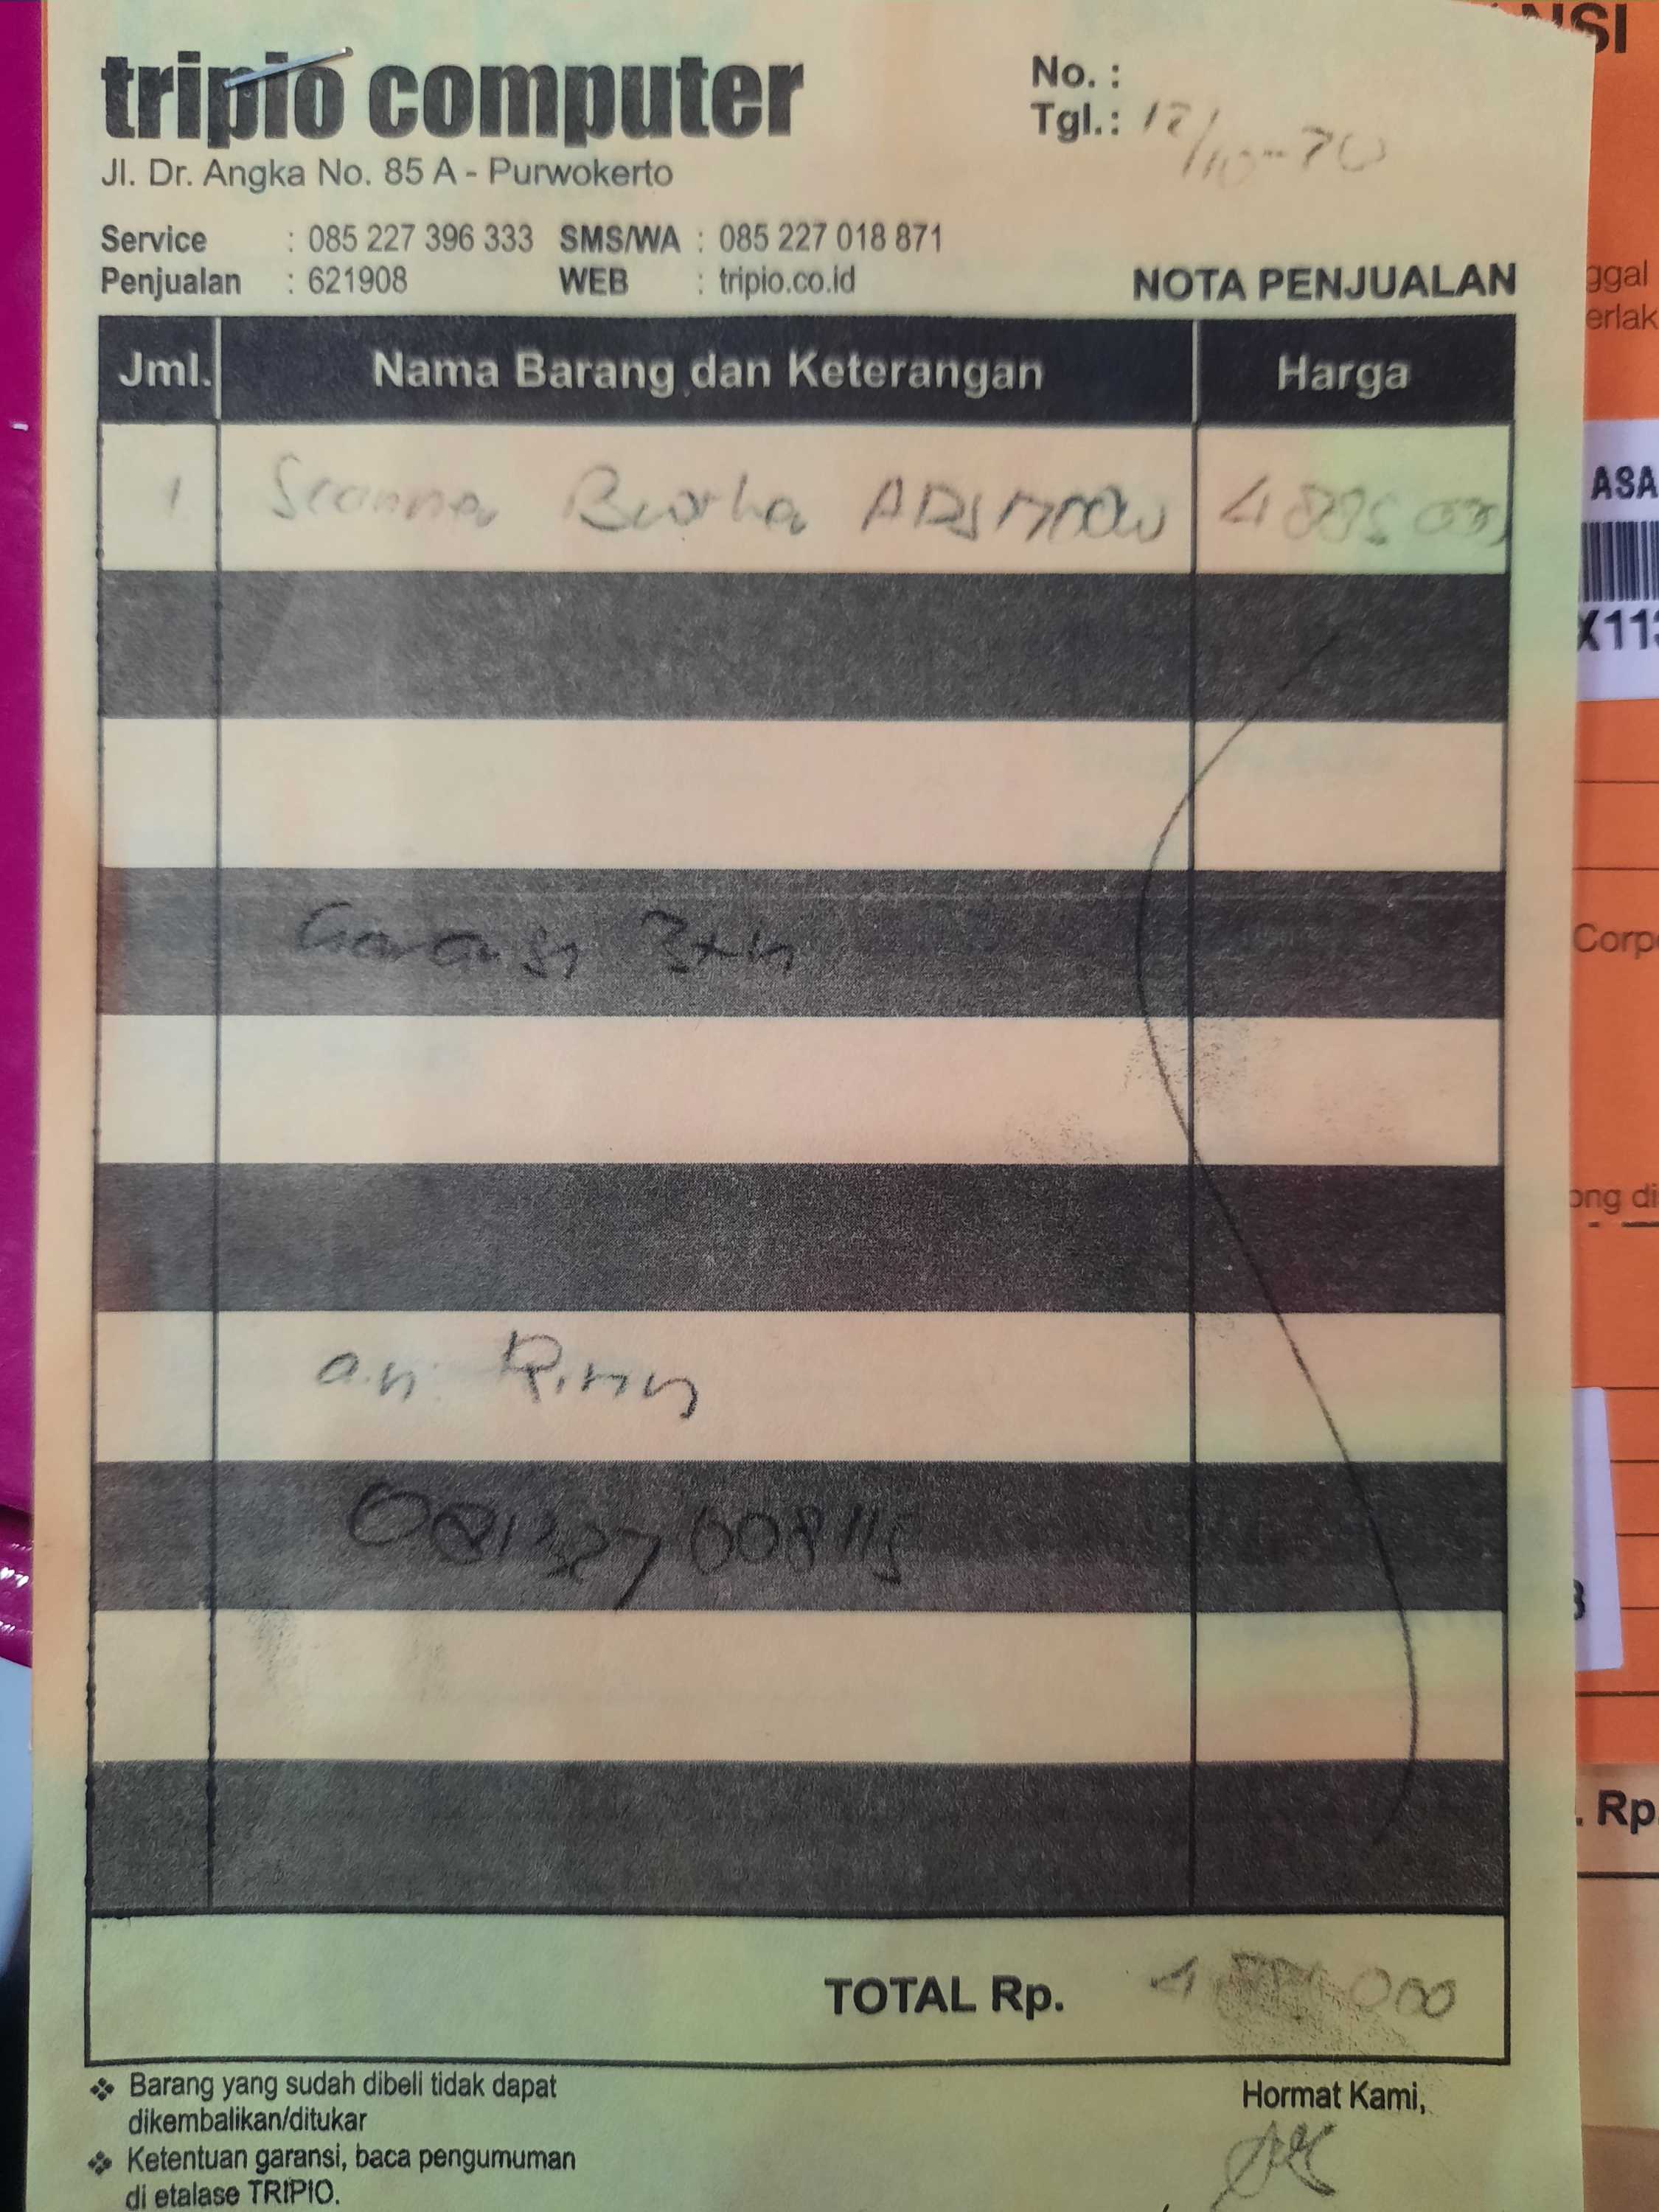 tripio computer
Jl. Dr. Angka No. 85 A - Purwokerto
No. :
Tgl.: 12/10-20
Service : 085 227 396 333 SMS/WA : 085 227 018 871
Penjualan : 621908 WEB : tripio.co.id
NOTA PENJUALAN
Jml. Nama Barang dan Keterangan Harga
1 Scanner Brother ADS 1700W
Garansi 3 th
a.n.
TOTAL Rp.
Barang yang sudah dibeli tidak dapat
dikembalikan/ditukar
Ketentuan garansi, baca pengumuman
di etalase TRIPIO.
Hormat Kami,
NSI
ggal
erlak
ASA
X113
Corp
ong di
Rp